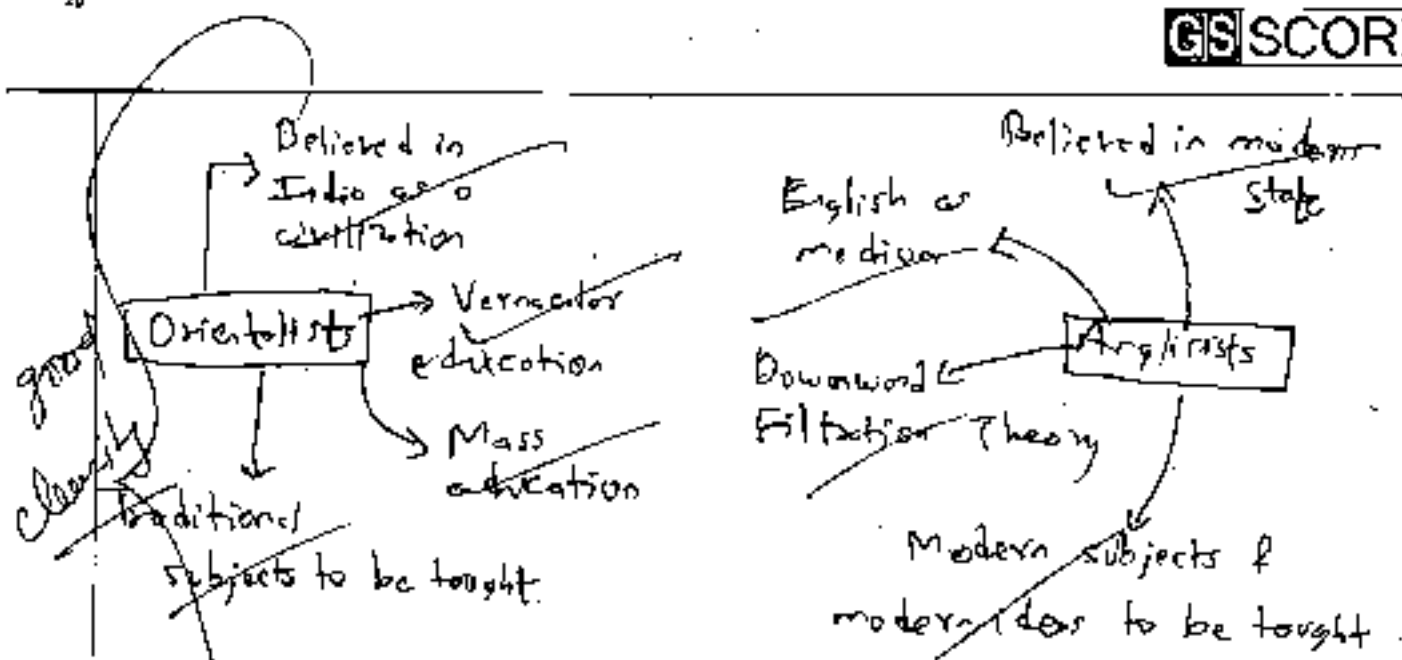 GS SCOR
Believed in
India as a
civilization
Orientalists
Vernacular
education
Mass
education
traditional
subjects to be tought
good
clarity
Believed in modern
state
English as
medium
Anglists
Downword
Filtration Theory
Modern subjects &
modern ideas to be tought.